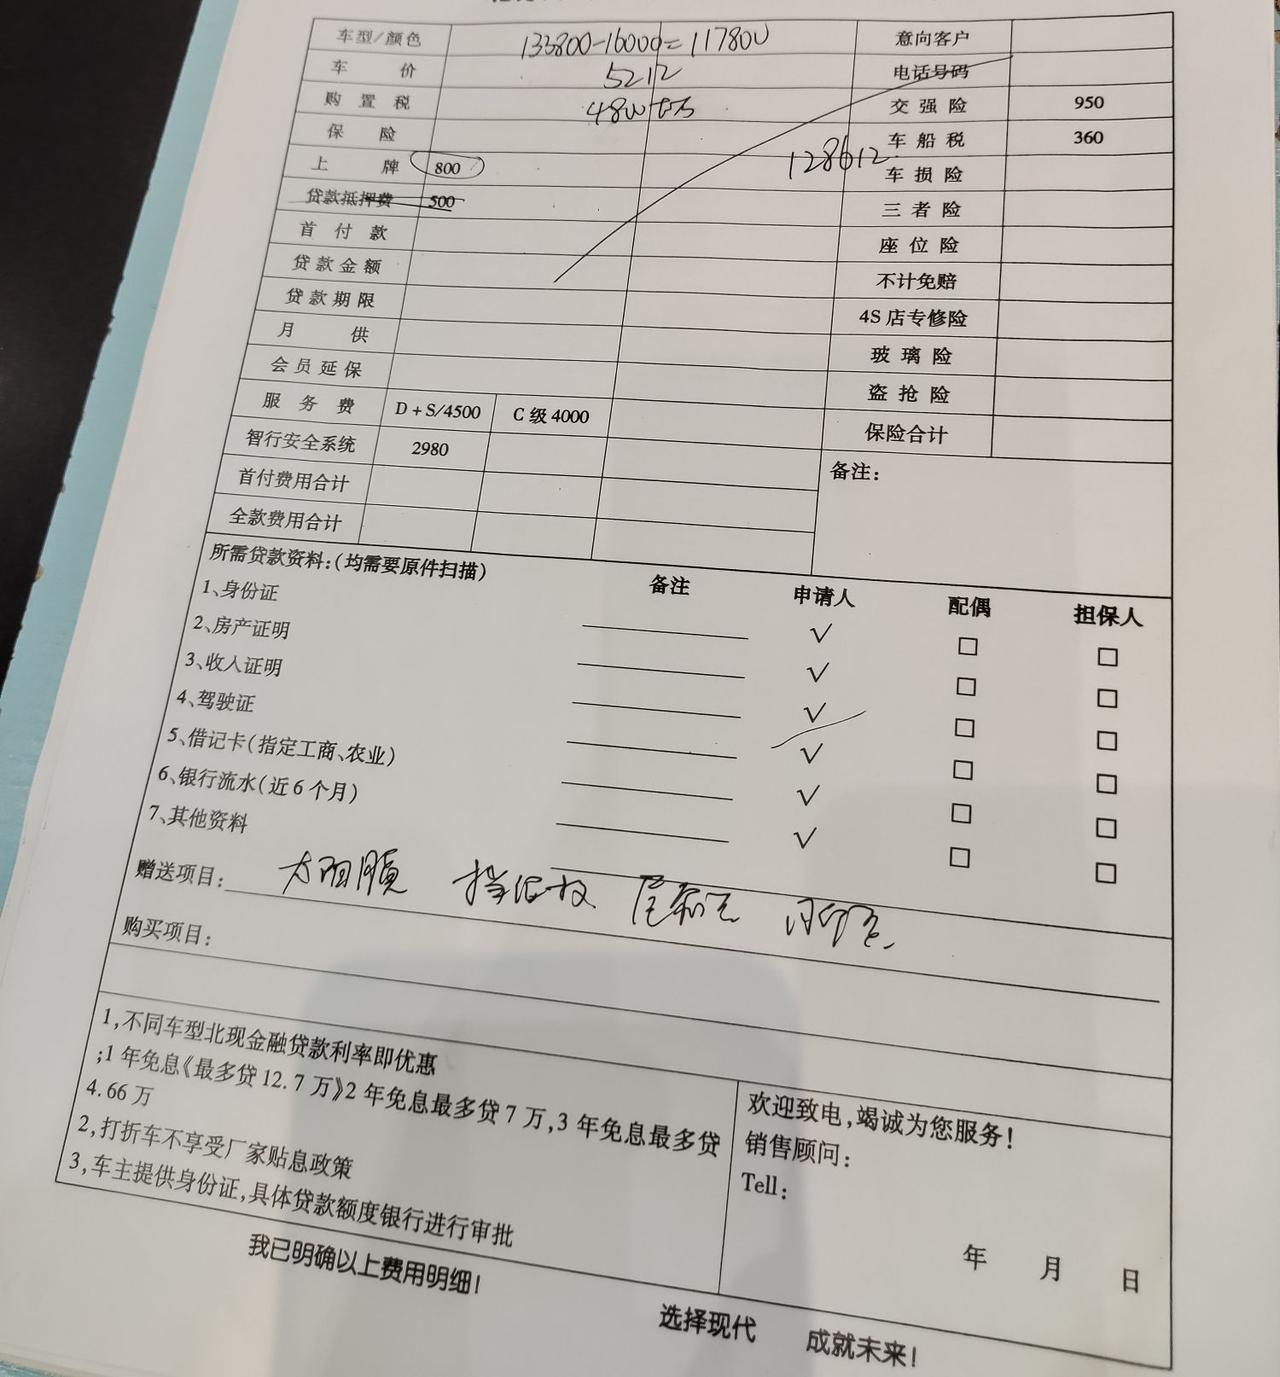 车型/颜色 133800-16000=117800 意向客户
车价 5212 电话号码
购置税 4800 交强险 950
保险 128612 车船税 360
上牌 800 车损险
贷款抵押费 500 三者险
首付款 座位险
贷款金额 不计免赔
贷款期限 4S店专修险
月供 玻璃险
会员延保 盗抢险
服务费 D+S/4500 C级4000 保险合计
智行安全系统 2980 备注：
首付费用合计
全款费用合计
所需贷款资料：（均需要原件扫描） 备注 申请人 配偶 担保人
1、身份证 √ □ □
2、房产证明 √ □ □
3、收入证明 √ □ □
4、驾驶证 √ □ □
5、借记卡（指定工商、农业） √ □ □
6、银行流水（近6个月） √ □ □
7、其他资料
赠送项目： 太阳膜 挡泥板 尾箱垫
购买项目：
1,不同车型北现金融贷款利率即优惠
;1年免息《最多贷12.7万》2年免息最多贷7万,3年免息最多贷
4.66万
2,打折车不享受厂家贴息政策
3,车主提供身份证,具体贷款额度银行进行审批
欢迎致电,竭诚为您服务!
销售顾问：
Tell：
年 月 日
我已明确以上费用明细!
选择现代 成就未来!